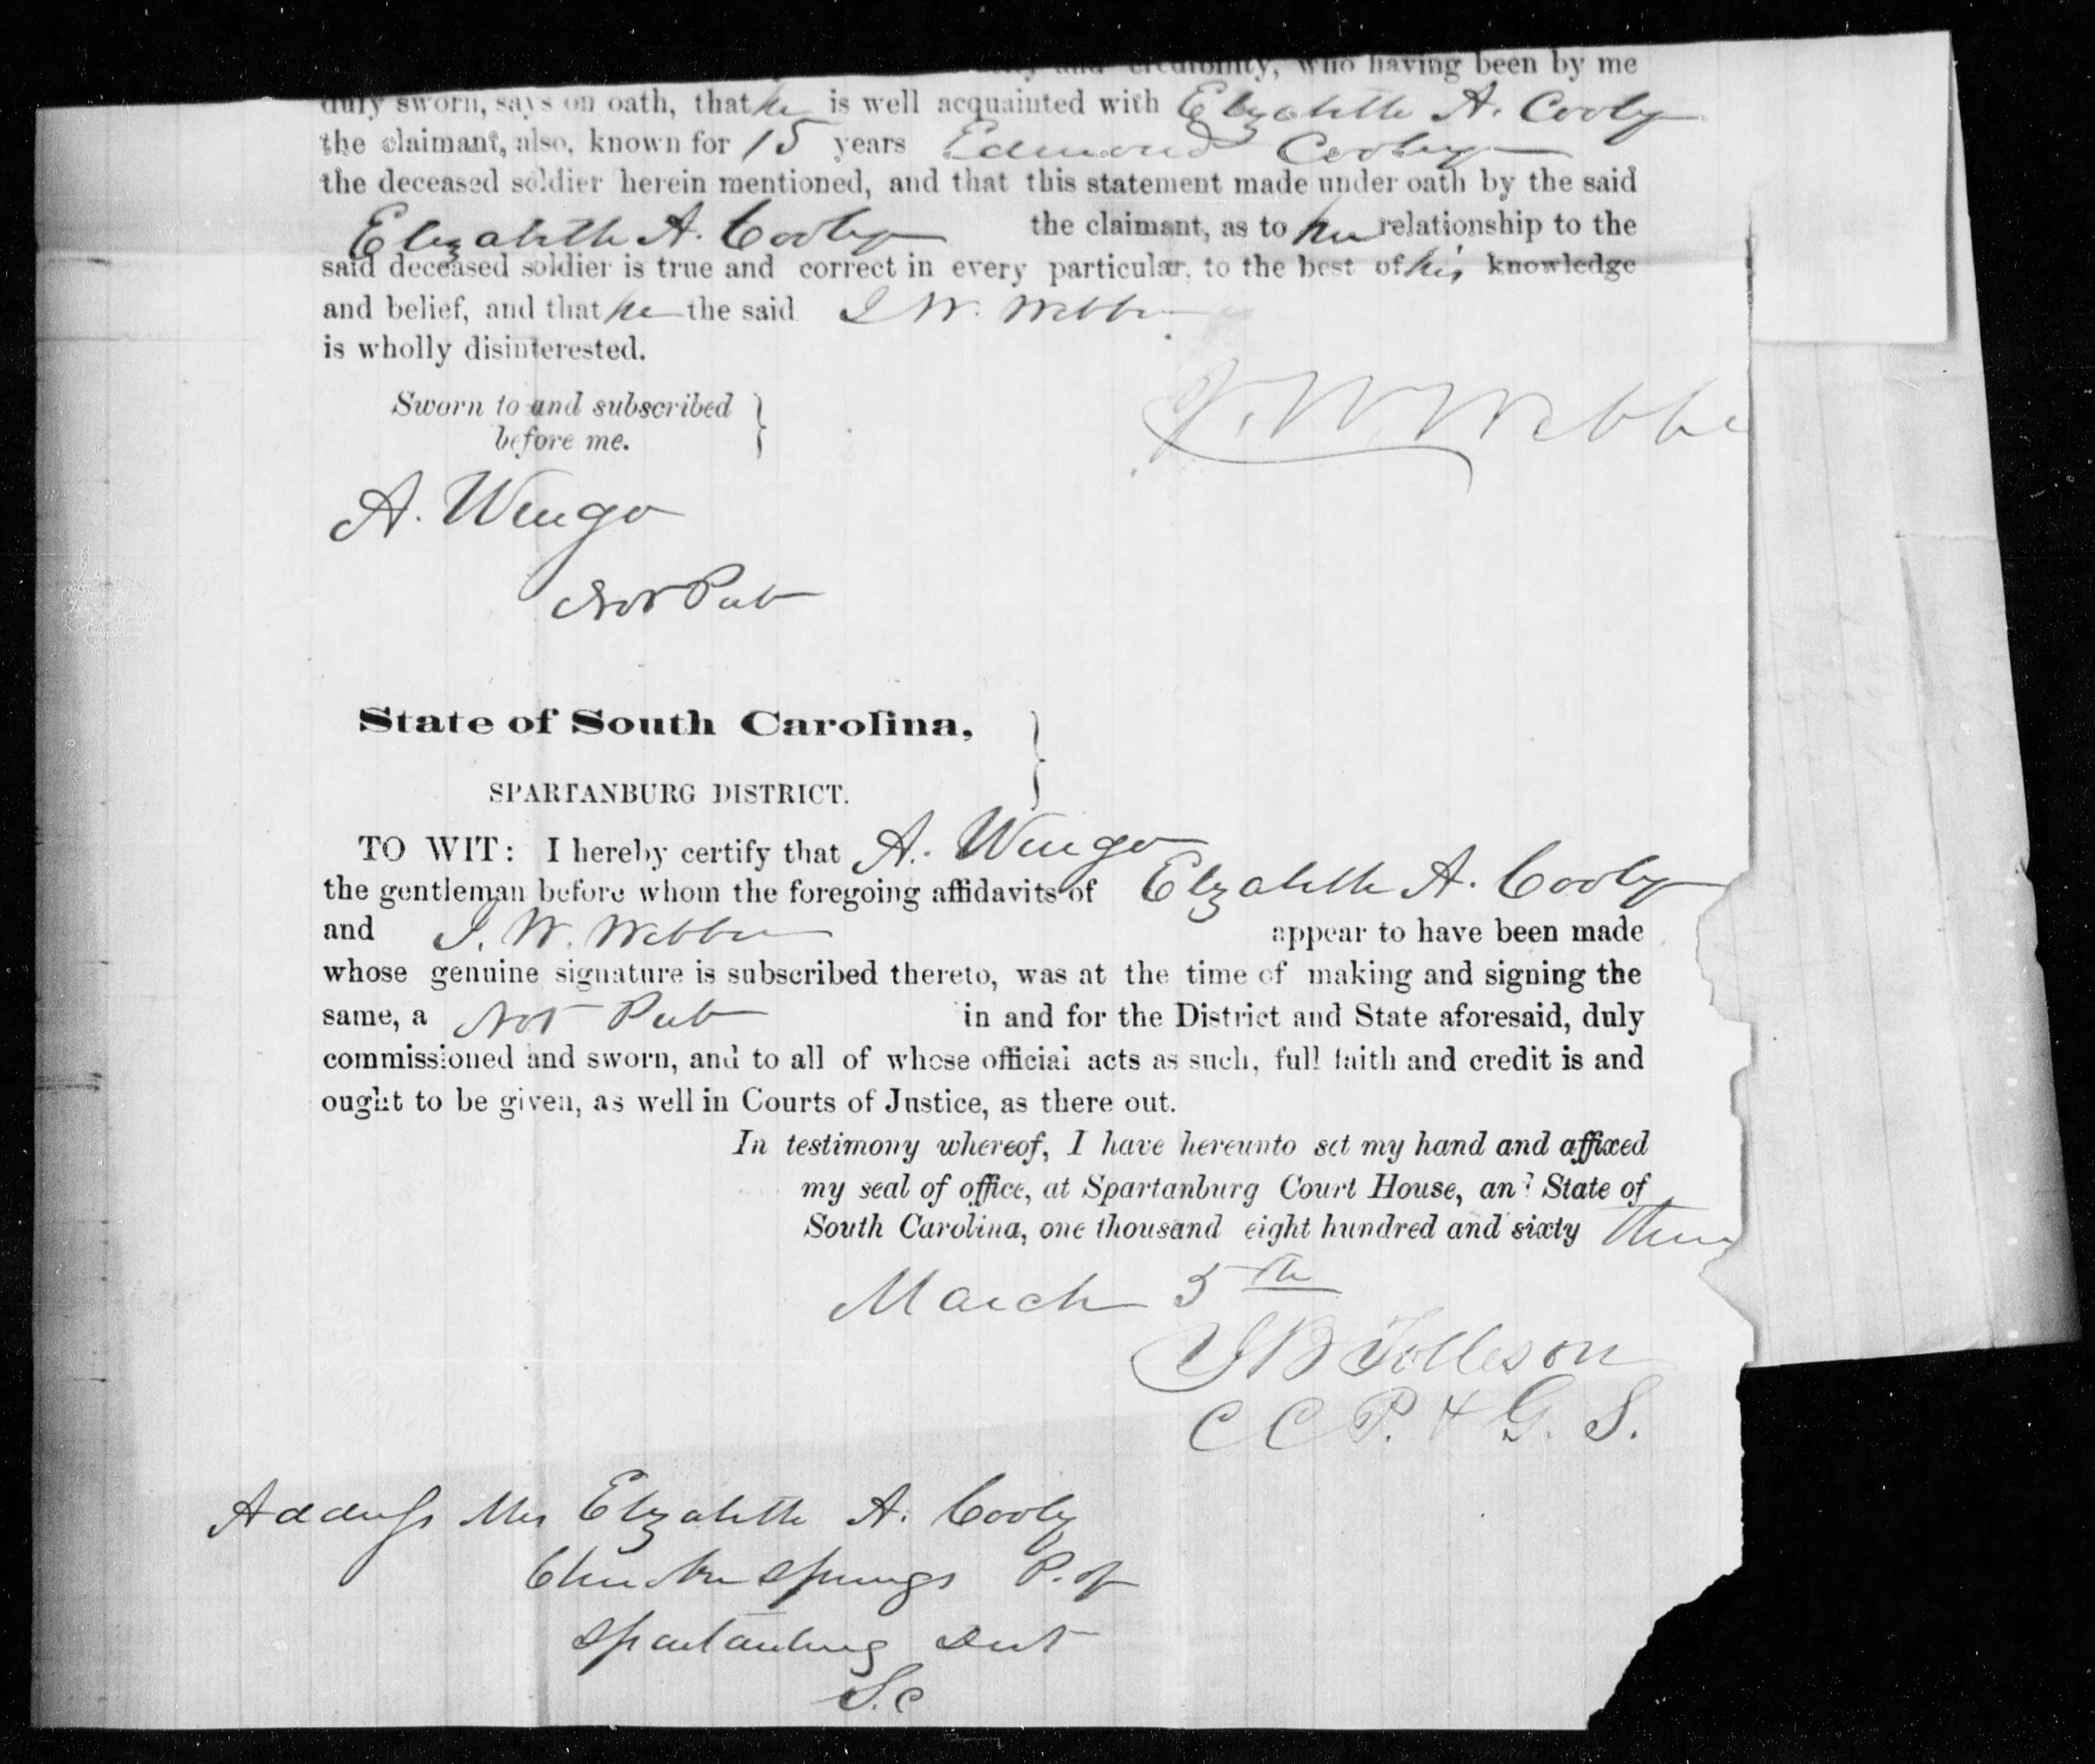 and credibility, who having been by me
duly sworn, says on oath, that he is well acquainted with Elizabeth A. Cooly
the claimant, also, known for 15 years Edmond Cooly
the deceased soldier herein mentioned, and that this statement made under oath by the said
Elizabeth A. Cooly the claimant, as to her relationship to the
said deceased soldier is true and correct in every particular, to the best of his knowledge
and belief, and that he the said J W. Webber
is wholly disinterested.
Sworn to and subscribed
before me.
J. W. Webbe
A. Wingo
Not Pub
State of South Carolina,
SPARTANBURG DISTRICT.
TO WIT: I hereby certify that A. Wingo
the gentleman before whom the foregoing affidavits of Elizabeth A. Cooly
and J. W. Webber appear to have been made
whose genuine signature is subscribed thereto, was at the time of making and signing the
same, a Not Pub in and for the District and State aforesaid, duly
commissioned and sworn, and to all of whose official acts as such, full faith and credit is and
ought to be given, as well in Courts of Justice, as there out.
In testimony whereof, I have hereunto set my hand and affixed
my seal of office, at Spartanburg Court House, and State of
South Carolina, one thousand eight hundred and sixty Three
March 5th
J B Tolleson
C C P. & G. S.
Address Mrs Elizabeth A. Cooly
Springs P. of
Spartanburg Dist
S.C